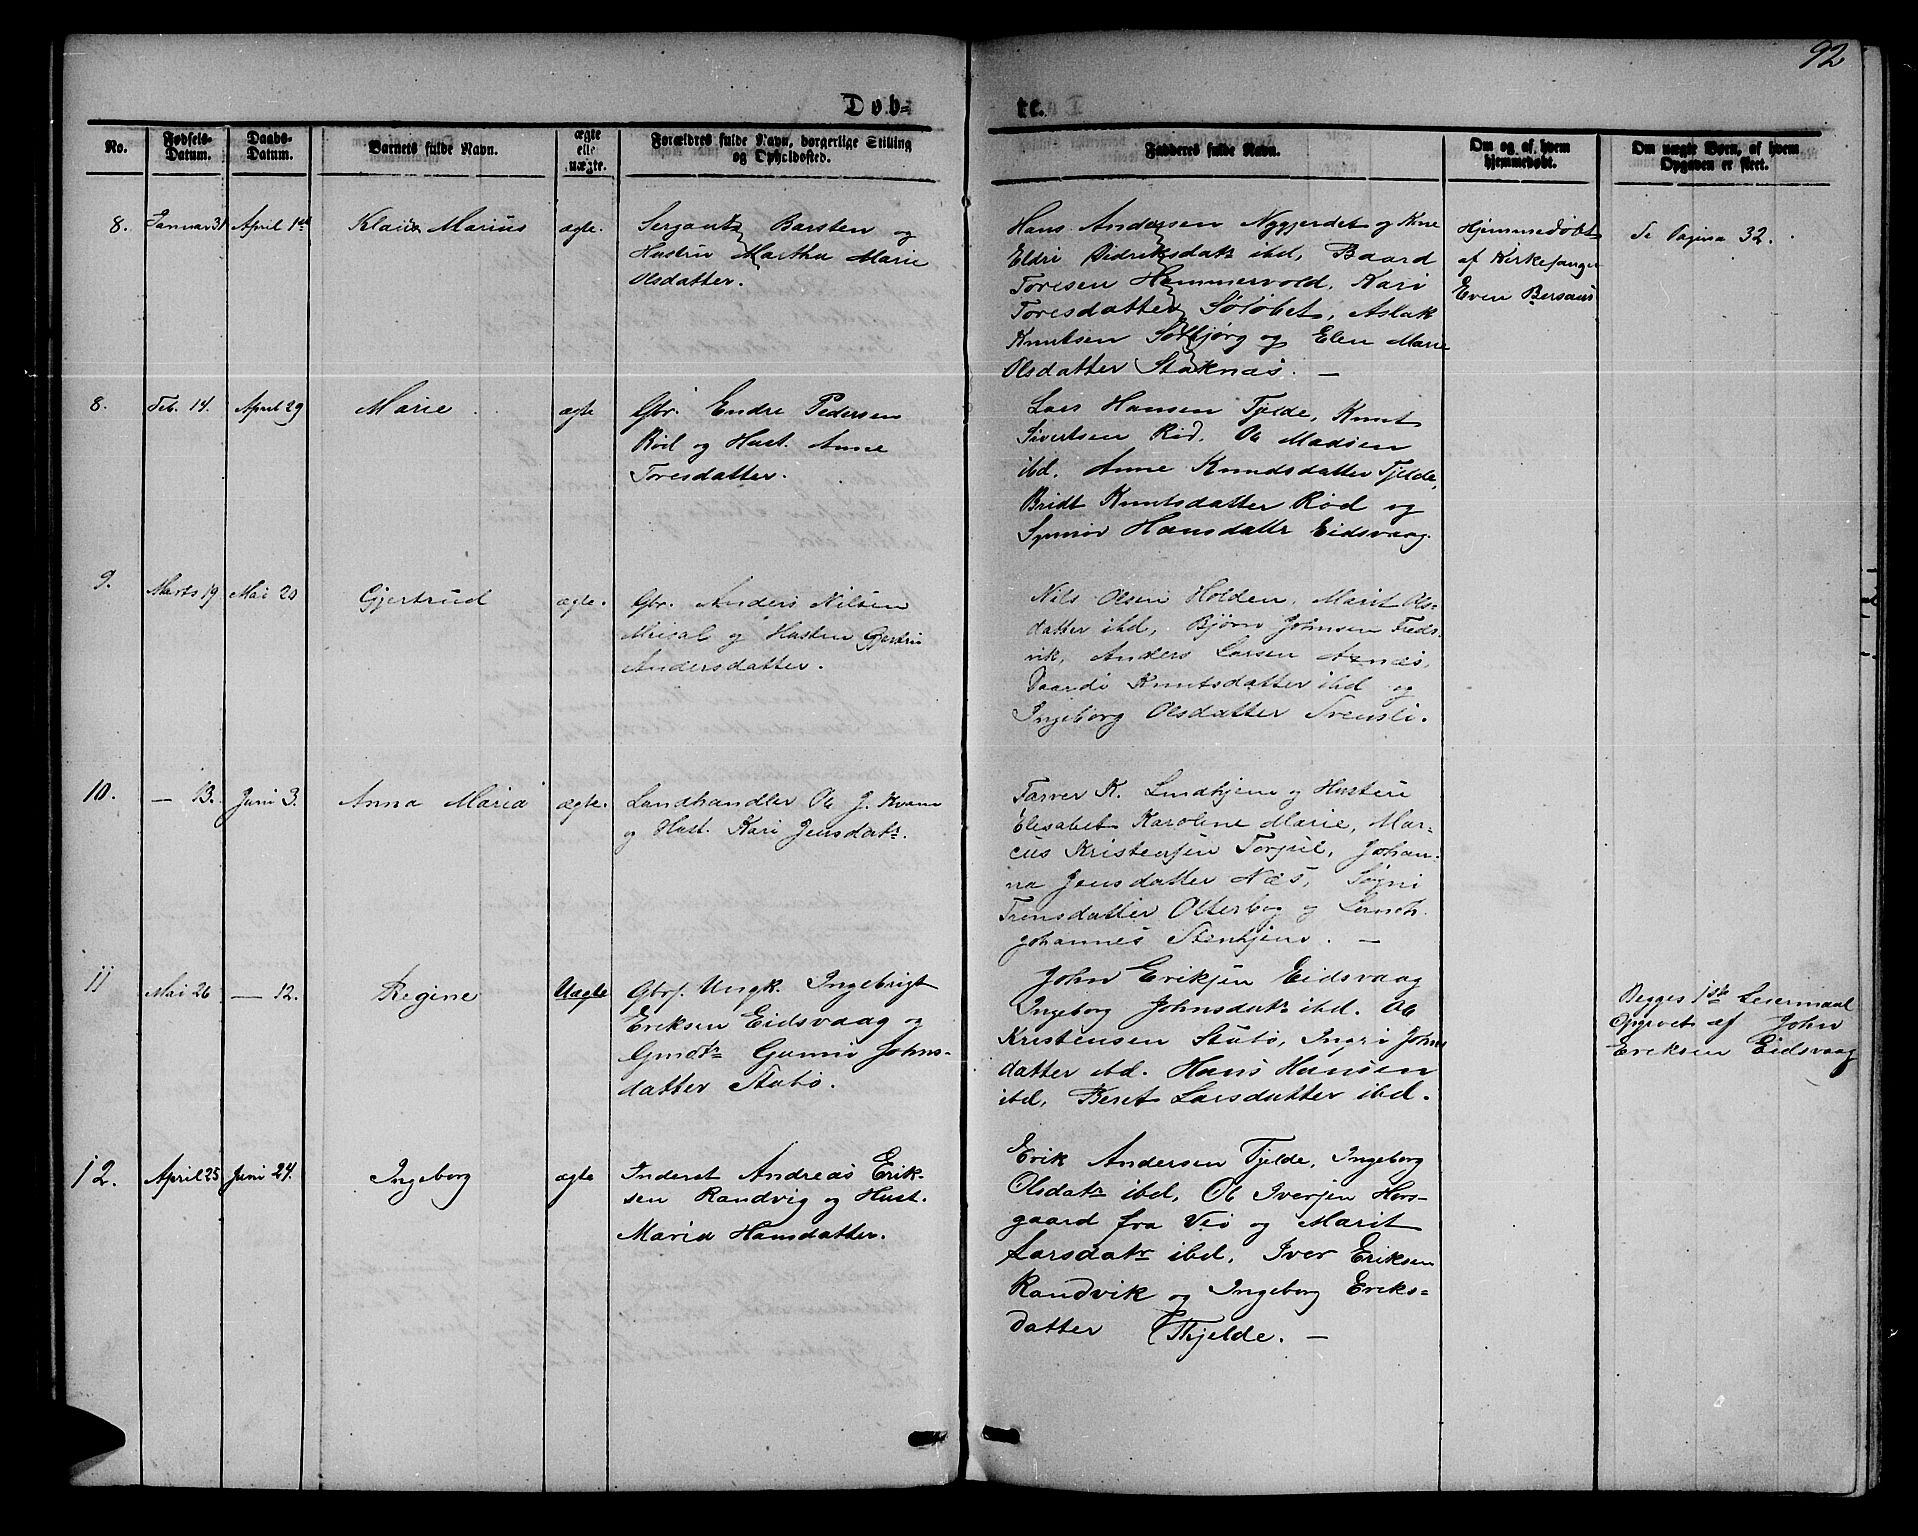 92
Døb-
te.
No.
Fødsels-
Datum.
Daabs-
Datum.
Barnets fulde Navn.
ægte
elle
uægte.
Forældres fulde Navn, borgerlige Stilling
og Opholdssted.
Fadderes fulde Navn.
Om og af hvem
hjemmedøbt.
Om uægte Børn, af hvem
Opgaven er skeet.
8.
Januar 31
April 1ste
Marius
ægte.
Sergant Barsten og
Hustru Martha Marie
Olsdatter.
Hans Andersen Nygjerdet og Kne
Eldri Didriksdatr ibd, Baard
Toresen Hammervold, Kari
Toresdatter Søløbet, Aslak
Knutsen Sølbjørg og Elen Marie
Olsdatter Staknæs. —
Hjemmedøbt
af Kirkesanger
Even Bersaas
Se Pagina 32.
8.
Feb. 14.
April 29
Marie
ægte
Gbr. Endre Pedersen
Rød og Hust. Anne
Toresdatter.
Lars Hansen Tjelde, Knut
Sivertsen Rød, Ole Madsen
ibd. Anne Knudsdatter Tjelde,
Bridt Knutsdatter Rød og
Synnøv Hansdattr Eidsvaag.
9.
Marts 19
Mai 20
Gjertrud
ægte.
Gbr. Anders Nilsen
Meisal og Hustru
Andersdatter.
Nils Olsen Holden, Marit Ols-
datter ibd, Bjørn Johnsen Freds-
vik, Anders Larsen
Baardi Knutsdatter ibd og
Ingeborg Olsdatter
10.
— 13.
Juni 3.
Anna Maria
ægte.
Landhandler Ole J. Kvam
og Hust. Kari Jensdatr.
K. Lindhjem og Hustru
Elisabet Karoline Marie, Mar-
cus Kristensen Johan-
na Jensdatter Næs,
Otterbog og
Johannes Stenhjem. —
11
Mai 26
— 12.
Regine
Uægte
Gbrs. Ungk. Ingebrigt
Eriksen Eidsvaag og
Gmdtr Gunni Johns-
datter Stubø.
John Eriksen Eidsvaag
Ingeborg Johnsdatr ibd. Ole
Kristensen Stubø, Ingri Johns
datter ibd. Hans Hansen
ibd, Beret Larsdatter ibd.
Begges 1ste Leiermaal
Opgivet af John
Eriksen Eidsvaag
12.
April 25
Juni 24.
Ingeborg
ægte
Inderst Andreas Erik-
sen Randvig og Hust.
Maria Hansdatter.
Erik Andersen Tjelde, Ingeborg
Olsdatr ibd, Ole Iversen Hors-
gaard fra Veø og Marit
Larsdatr ibd, Iver Eriksen
Randvik og Ingeborg Eriks-
datter Tjelde. —